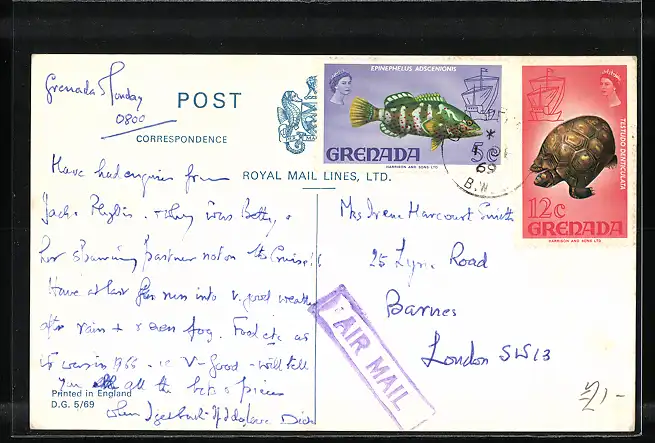 Grenada Monday
0800
POST
CORRESPONDENCE
ROYAL MAIL LINES, LTD.
Have had enquiries from
Jack Phyllis. + why was Betty &
her partner not on the Cruise!!
Have at last run into v. good weather
after rain + fog. Food etc as
it was in 1966 - i.e. V-good - will tell
you all the bits & pieces
when I get back - Dick
Printed in England
D.G. 5/69
EPINEPHELUS ADSCENIONIS
5c
GRENADA
HARRISON AND SONS LTD
69
B.W.
TESTUDO DENTICULATA
12c
GRENADA
HARRISON AND SONS LTD
Mrs Irene Harcourt Smith
25 Road
Barnes
London SW13
AIR MAIL
£1-